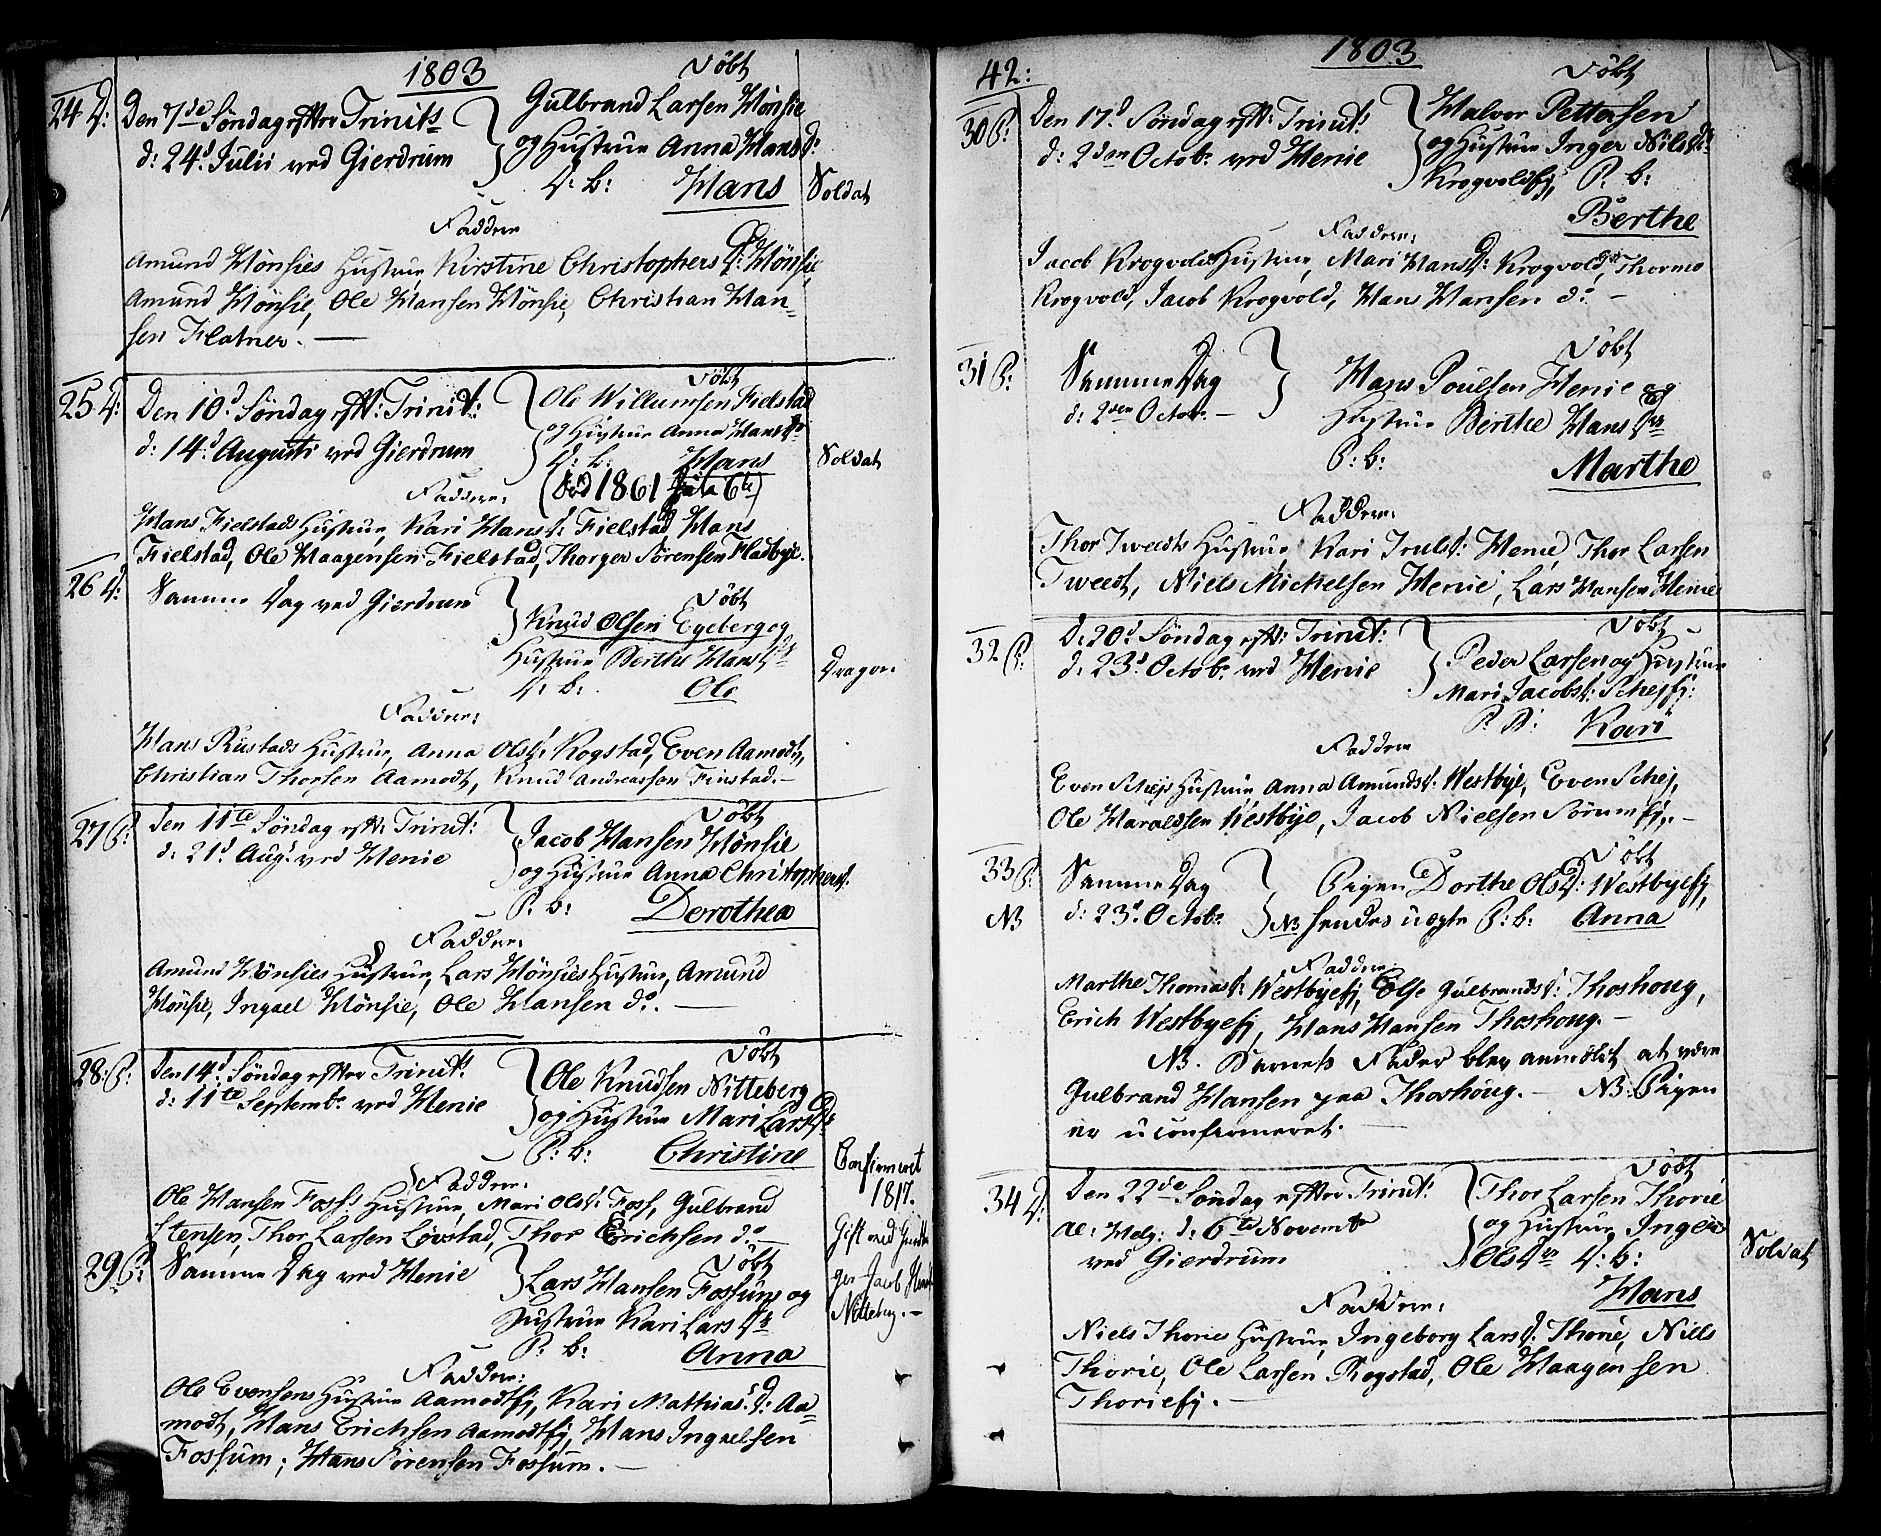 1803
24 D: Den 7de Søndag efter Trinits
d: 24d Julii ved Gierdrum
Döbt
Gulbrand Larsen Mönsie
og Hustrue Anna Hans d:
D: b: Hans
Soldat
Faddere
Amund Mönsies Hustrue, Kirstine Christophers D: Mönsie,
Amund Mönsie, Ole Hansen Mönsie, Christian Han-
sen Flatner. —
25 D: Den 10d Søndag eftr: Trinit:
d: 14d Augusti ved Gierdrum
Döbt
Ole Willumsen Fielstad
og Hustrue Anna Hans dr
D: b: Hans
(död 1861 Juli 6te)
Soldat
Faddere:
Hans Fielstads Hustrue, Kari Hans d: Fielstad, Hans
Fielstad, Ole Haagensen Fielstad, Thorger Sörensen Fladbye.
26 D: Samme Dag ved Gierdrum
Döbt
Knud Olsen Egeberg og
Hustrue Berthe Hans dr
D: b: Ole
Dragon
Faddere:
Hans Rustads Hustrue, Anna Ols d: Rogstad, Even Aamodt,
Christian Thorsen Aamodt, Knud Andreassen Finstad. —
27 P: Den 11te Søndag eftr: Trinit:
d: 21d Augt ved Henie
Döbt
Jacob Hansen Mönsie
og Hustrue Anna Christophers d:
P: b: Dorothea
Faddere:
Amund Mönsies Hustrue, Lars Mönsies Hustrue, Amund
Mönsie, Ingvel Mönsie, Ole Hansen do. —
28 P: Den 14d Søndag efter Trinit:
d: 11te Septembr ved Henie
Döbt
Ole Knudsen Nitteberg
og Hustrue Mari Lars Dr
P: b: Christine
Confirmeret
1817.
Gift med
Jacob
Nitteberg. —
Faddere:
Ole Hansen Foss's Hustrue, Mari Ols d: Foss, Gulbrand
Stensen, Thor Larsen Lövstad, Thor Erichsen do —
29 P: Samme Dag ved Henie
Döbt
Lars Hansen Fossum og
Hustrue Kari Lars dr
P: b: Anna
Faddere:
Ole Evensens Hustrue Aamodtej, Kari Mathias D: Aa-
modt, Hans Erichsen Aamodtej, Hans Ingvelsen
Fossum; Hans Sörensen Fossum. —
42:
1803
30 P: Den 17d Søndag eft: Trinit:
d: 2den Octobr ved Henie
Döbt
Halvor Pettersen
og Hustrue Inger Nils dr
Krogvoldej, P: b:
Berthe
Faddere:
Jacob Krogvolds Hustrue, Mari Hans d: Krogvold, Thormo
Krogvold, Jacob Krogvold, Hans Hansen do. —
31 P: Samme Dag
d: 2den Octobr. —
Döbt
Hans Poulsen Henie og
Hustrue Berthe Hans dr
P: b:
Marthe
Faddere:
Thor Tweedts Hustrue, Kari Truls d: Henie, Thor Larsen
Tweedt, Niels Mickelsen Henie, Lars Hansen Henie
32 P: D: 20d Søndag eftr: Trinit:
d: 23d Octobr ved Henie
Döbt
Peder Larsen og Hustrue
Mari Jacobs d: Schejej:
P: b: Kari
Faddere
Even Schejs Hustrue Anna Amunds d: Westbye, Even Schej,
Ole Haraldsen Westbye, Jacob Nielsen Sörumej. —
33 P: Samme Dag
NB d: 23d Octobr
Döbt
Pigen Dorthe Ols D: Westbyeej,
NB hendes uegte P: b: Anna
Faddere:
Marthe Thomas d: Westbyeej, Else Gulbrands d: Thoshoug,
Erich Westbyeej, Hans Hansen Thoshoug. —
NB. Barnets Fader blev anmeldt at være
Gulbrand Hansen paa Thoshoug. — NB: Pigen
er uconfirmeret. —
34 D: Den 22de Søndag efter Trinit:
al: Helg: d: 6te Novembr
ved Gierdrum
Döbt
Thor Larsen Thorie
og Hustrue Inger
Ols dr D: b:
Hans
Soldat
Faddere:
Niels Thories Hustrue, Ingeborg Lars d: Thorie, Niels
Thorie, Ole Larsen Rogstad, Ole Haagensen
Thorieej. —